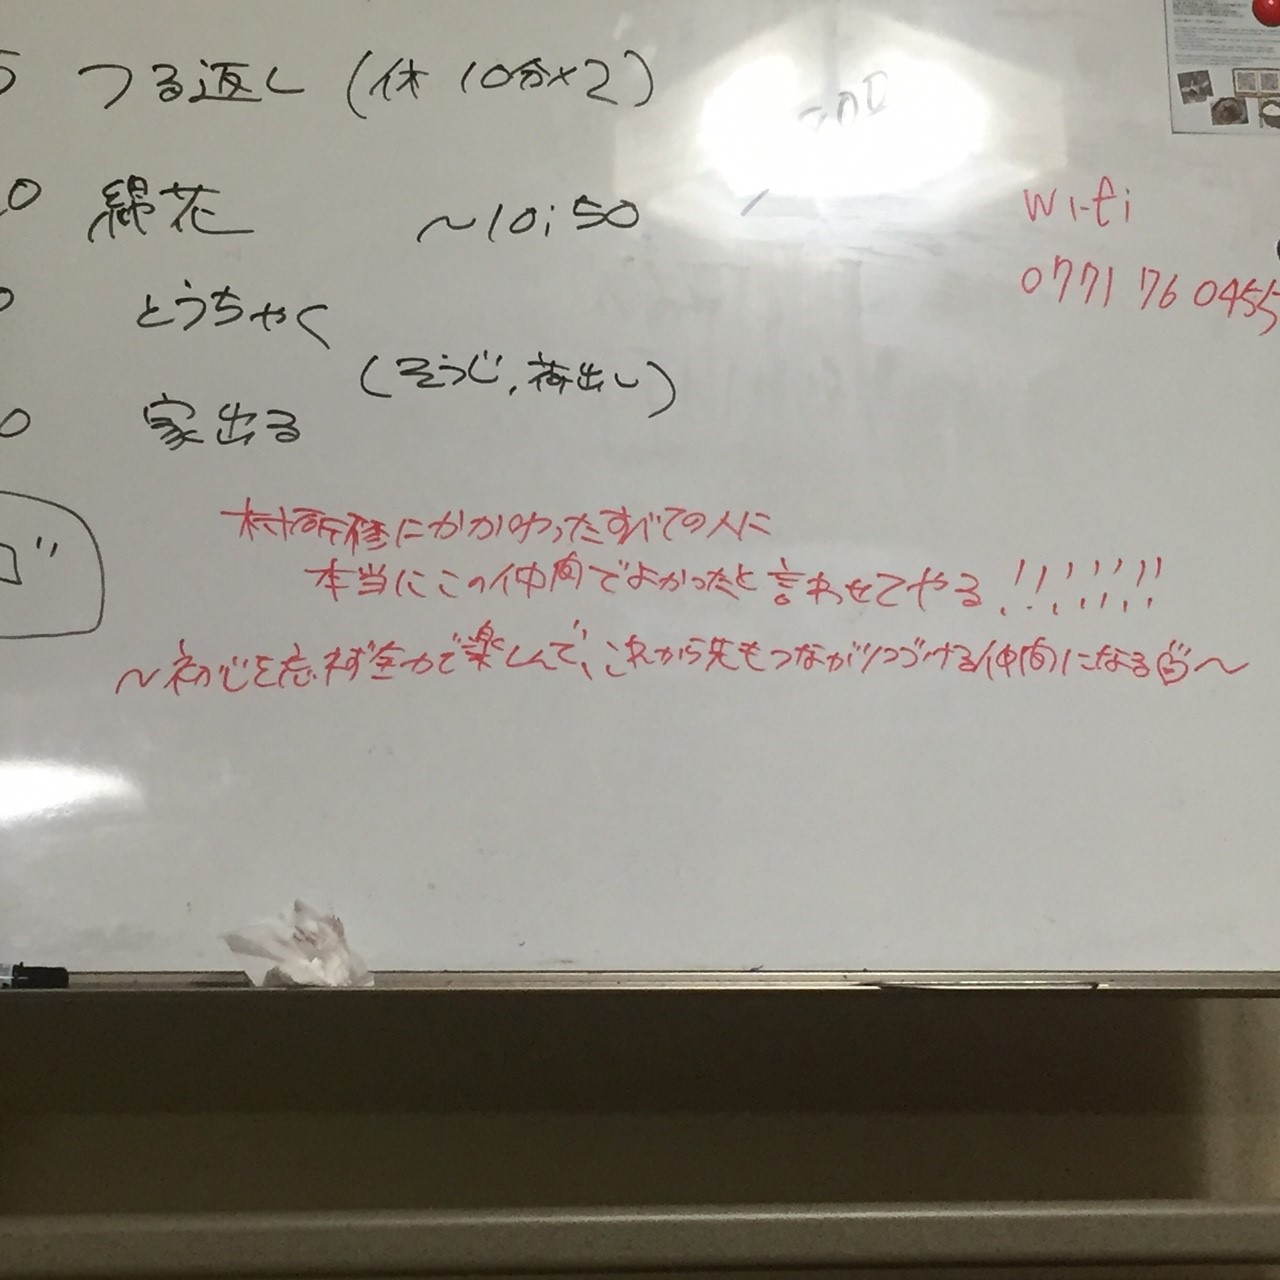 5 つる返し (休 10分×2)
0 綿花 〜10:50
wi-fi
0771 76 0455
0 とうちゃく
(そうじ,荷出し)
0 家出る
村所修にかかわったすべての人に
本当にこの仲間でよかったと言わせてやる!!!!!!!
〜初心を忘れず全力で楽しんで、これから先もつながりつづける仲間になる〜